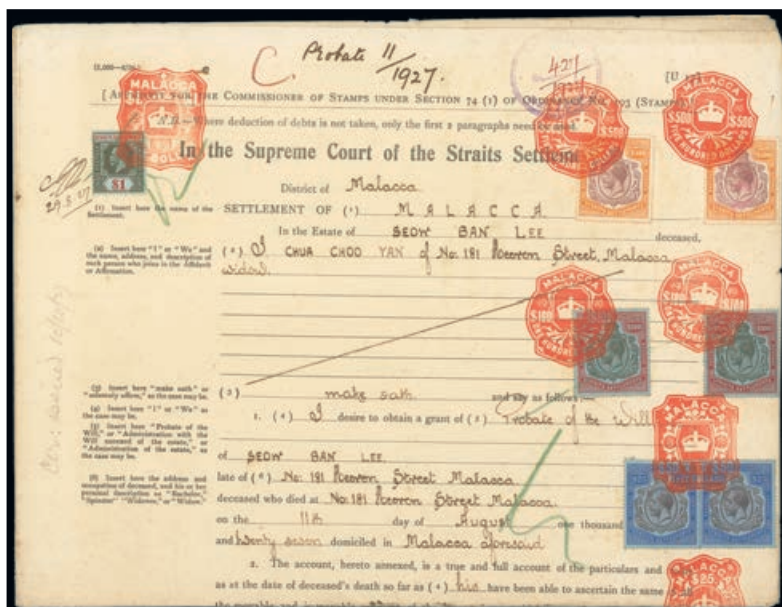 Probate 11/1927.
C.
427/1927
[U 17]
[AFFIDAVIT FOR THE COMMISSIONER OF STAMPS UNDER SECTION 74 (1) OF ORDINANCE No. 195 (STAMPS)]
N.B.—Where deduction of debts is not taken, only the first 2 paragraphs need be used.
In the Supreme Court of the Straits Settlem
District of Malacca
SETTLEMENT OF (1) MALACCA
In the Estate of SEOW BAN LEE deceased,
(2) I CHUA CHOO YAN of No: 181 Heeren Street, Malacca
widow.
(3) make oath and say as follows:—
1. (4) I desire to obtain a grant of (5) Probate of the Will
of SEOW BAN LEE
late of (6) No: 181 Heeren Street Malacca
deceased who died at No: 181 Heeren Street Malacca
on the 11th day of August one thousand
and twenty seven domiciled in Malacca aforesaid
2. The account, hereto annexed, is a true and full account of the particulars and
as at the date of deceased's death so far as (4) his have been able to ascertain the same
(1) Insert here the name of the
Settlement.
(2) Insert here "I" or "We" and
the name, address, and description of
each person who joins in the Affidavit
or Affirmation.
(3) Insert here "make oath" or
"solemnly affirm," as the case may be.
(4) Insert here "I" or "We" as
the case may be.
(5) Insert here "Probate of the
Will," or "Administration with the
Will annexed of the estate," or
"Administration of the estate," as
the case may be.
(6) Insert here the address and
occupation of deceased, and his or her
personal description as "Bachelor,"
"Spinster" "Widower," or "Widow."
29.8.27
$1
MALACCA
MALACCA
$500 $500
FIVE HUNDRED DOLLARS
MALACCA
$100
ONE HUNDRED DOLLARS
MALACCA
$100
MALACCA
$25